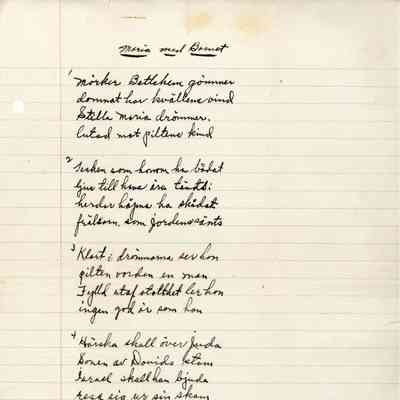 Maria med Barnet
1 Mörker Betlehem gömmer
domnat har kvällens vind
Stilla maria drömmer,
lutad mot piltens kind
2 Tecken som honom ha bådat
ljus till hans ära tänts;
herdar häpna ha skådat
frälsarn, som jorden sänts
3 Klart i drömmarna ser hon
pilten vorden en man
Fylld utaf stolthet ler hon
ingen god är som han
4 Härska skall över Juda
Sonen av Davids stam
Israel skall han bjuda
resa sig ur sin skam